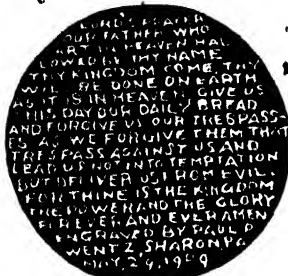 LORD'S PRAYER
OUR FATHER WHO
ART IN HEAVEN HAL
LOWED BE THY NAME
THY KINGDOM COME THY
WILL BE DONE ON EARTH
AS IT IS IN HEAVEN GIVE US
THIS DAY OUR DAILY BREAD
AND FORGIVE US OUR TRESPASS-
ES AS WE FORGIVE THEM THAT
TRESPASS AGAINST US AND
LEAD US NOT INTO TEMPTATION
BUT DELIVER US FROM EVIL.
FOR THINE IS THE KINGDOM
THE POWER AND THE GLORY
FOREVER AND EVER AMEN
ENGRAVED BY PAUL P
WENTZ SHARON PA.
MAY, 29, 1909